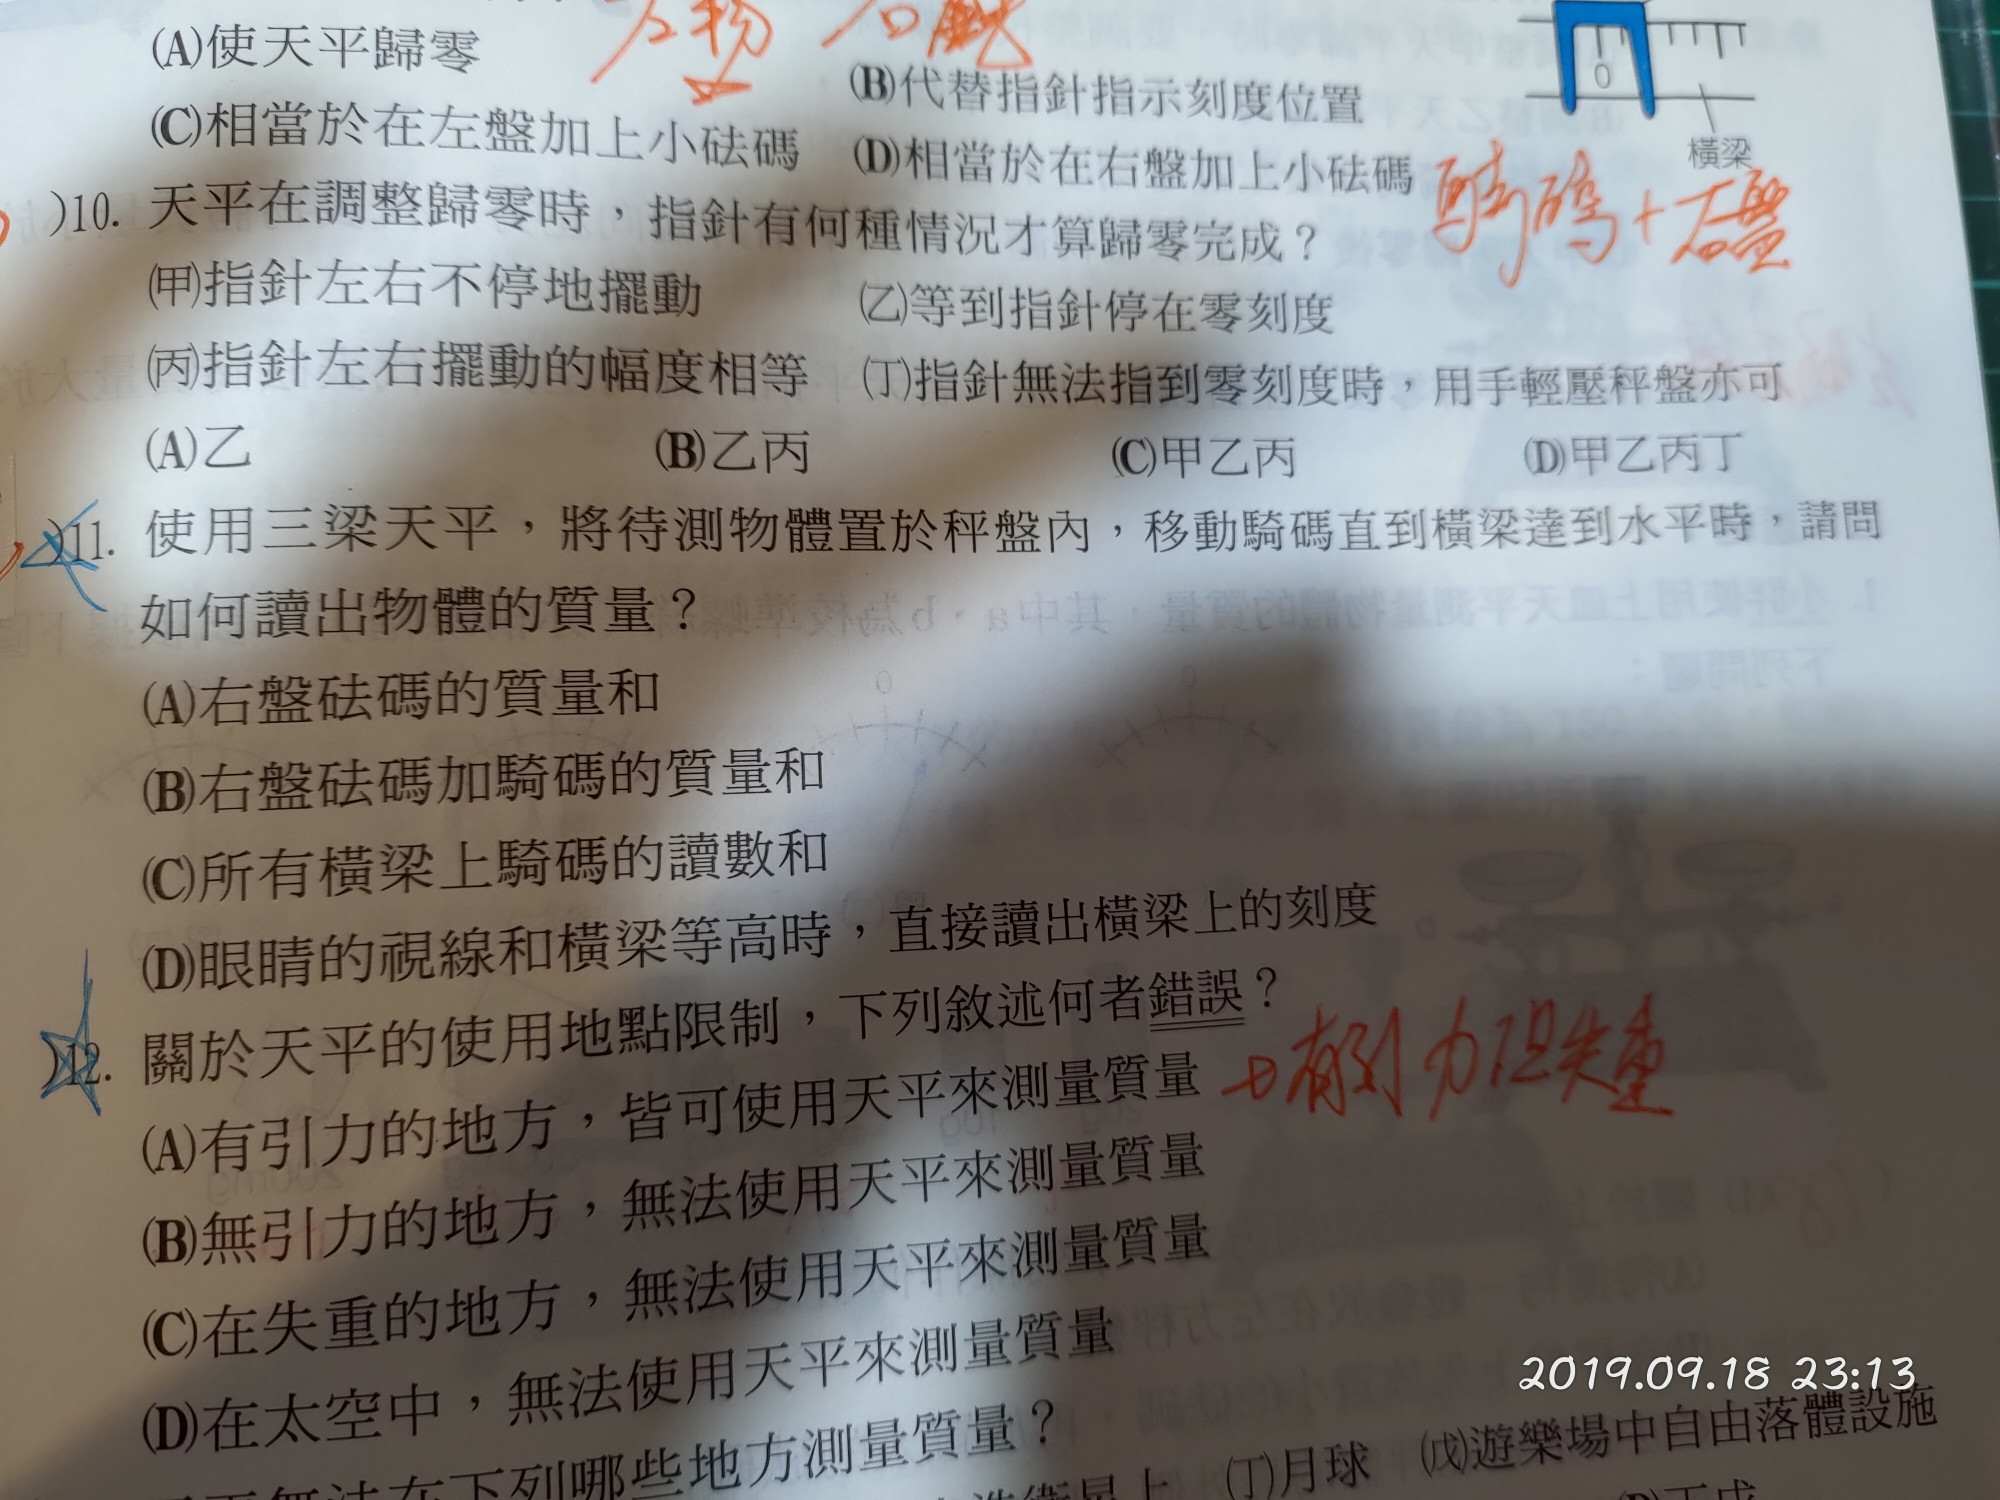 (A)使天平歸零
(B)代替指針指示刻度位置
0
(C)相當於在左盤加上小砝碼
(D)相當於在右盤加上小砝碼
橫梁
騎碼+右盤
)10. 天平在調整歸零時，指針有何種情況才算歸零完成？
(甲)指針左右不停地擺動
(乙)等到指針停在零刻度
(丙)指針左右擺動的幅度相等
(丁)指針無法指到零刻度時，用手輕壓秤盤亦可
(A)乙
(B)乙丙
(C)甲乙丙
(D)甲乙丙丁
)11. 使用三梁天平，將待測物體置於秤盤內，移動騎碼直到橫梁達到水平時，請問
如何讀出物體的質量？
(A)右盤砝碼的質量和
(B)右盤砝碼加騎碼的質量和
(C)所有橫梁上騎碼的讀數和
(D)眼睛的視線和橫梁等高時，直接讀出橫梁上的刻度
)12. 關於天平的使用地點限制，下列敘述何者錯誤？
(A)有引力的地方，皆可使用天平來測量質量
有引力但失重
(B)無引力的地方，無法使用天平來測量質量
(C)在失重的地方，無法使用天平來測量質量
(D)在太空中，無法使用天平來測量質量
在下列哪些地方測量質量？
(丁)月球
(戊)遊樂場中自由落體設施
2019.09.18 23:13